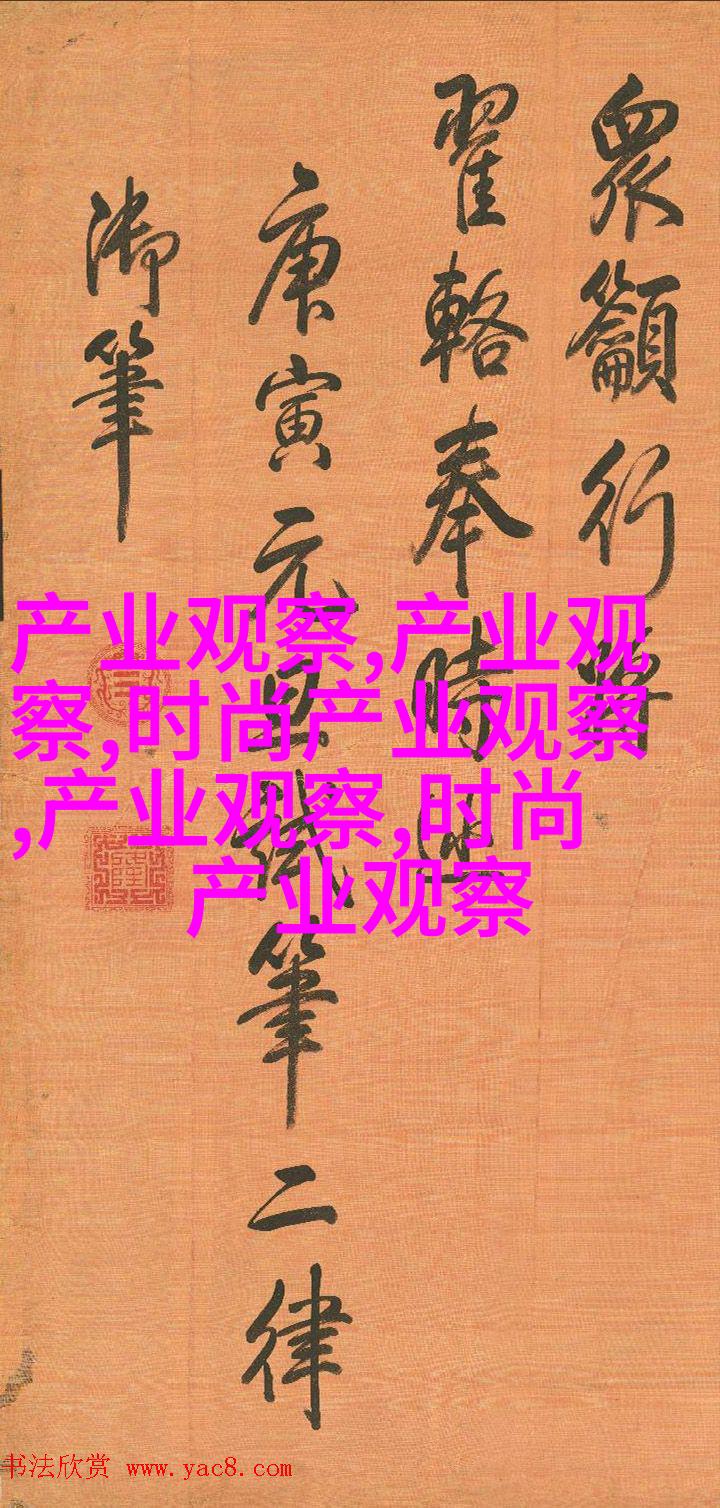 眾籲行將
翟輅奉時
庚寅元旦試筆二律
御筆
产业观察,产业观
察,时尚产业观察
,产业观察,时尚
产业观察
书法欣赏 www.yac8.com